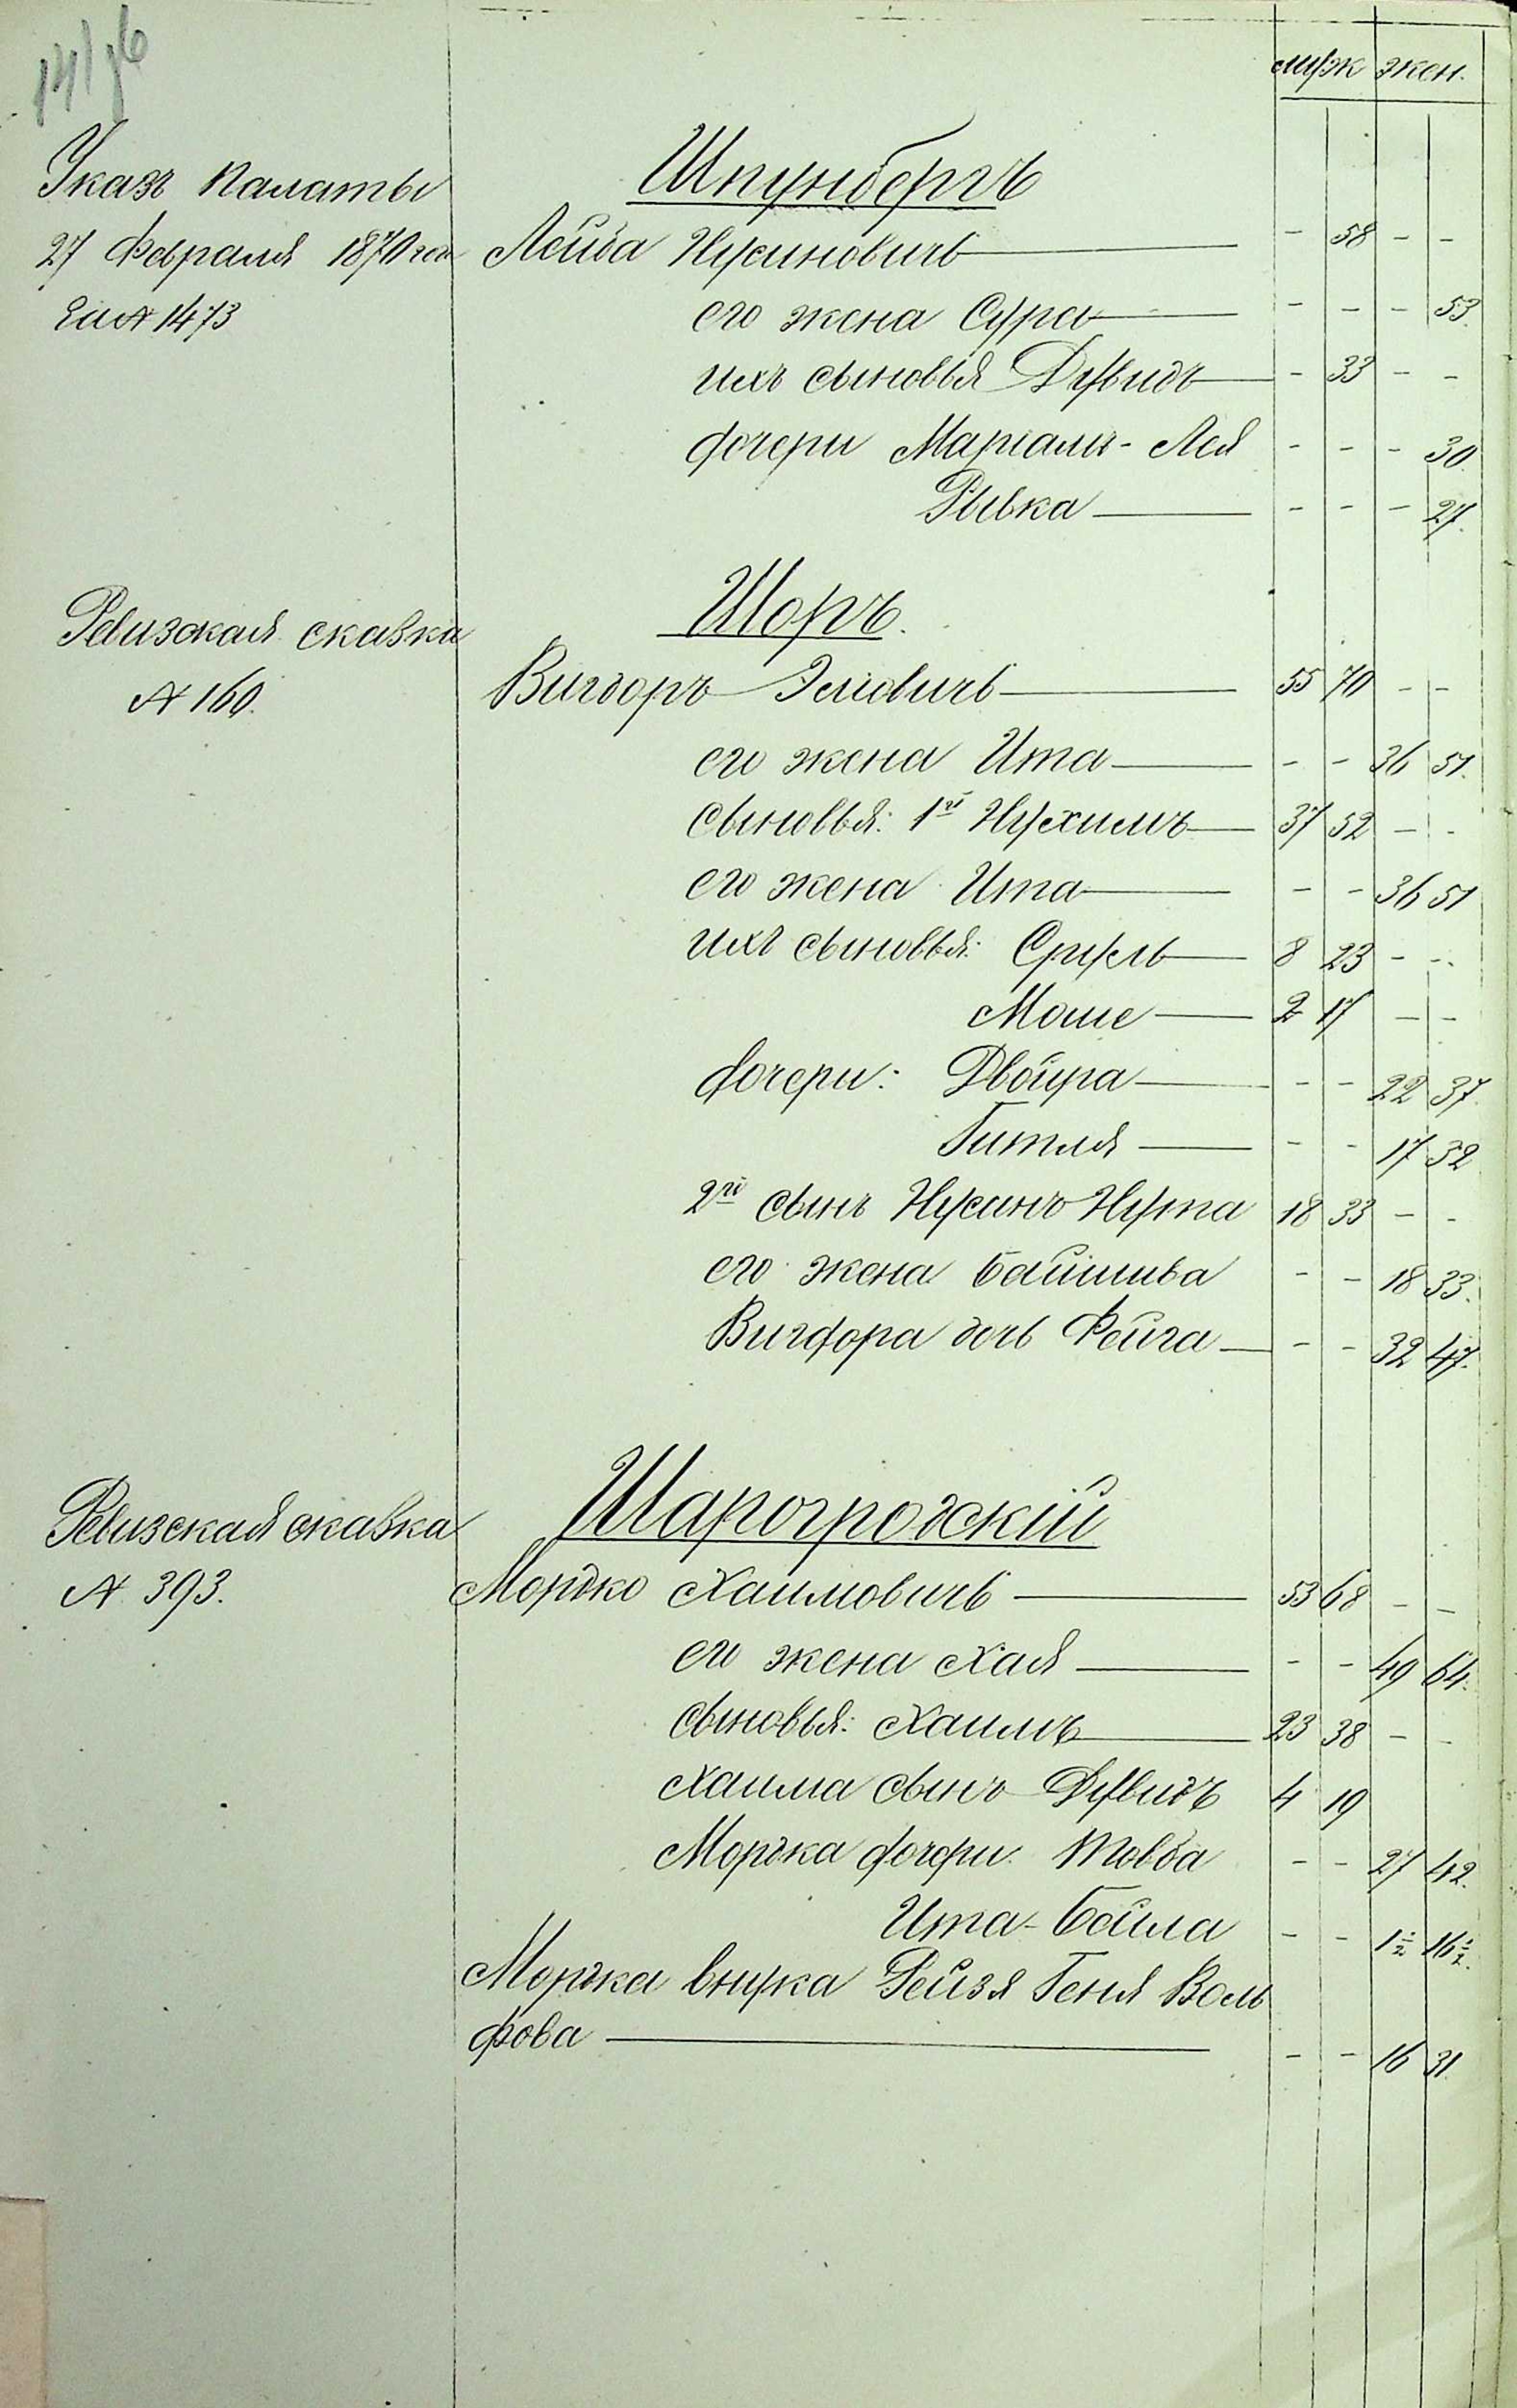 муж жен.
Указъ Палаты
27 Февраля 1870 год
За № 1473
Шпунбергъ
Лейба Нусиновичъ — - 58 - -
его жена Сура — - - - 53.
ихъ сыновья Дувидъ — - 33 - -
дочери Маріамъ-Лея - - - 30.
Рывка — - - - 27.
Ревизская сказка
№ 160.
Шоръ.
Вигдоръ Эліовичъ — 55 70 - -
его жена Ита — - - 36 51.
сыновья: 1й Нухимъ — 37 52 - -
его жена Ита — - - 36 51
ихъ сыновья: Сруль — 8 23 - -
Моше — 2 17 - -
дочери: Двойра — - - 22 37.
Гитля — - - 17 32
2й сынъ Нусинъ Нута 18 33 - -
его жена Башива - - 18 33.
Вигдора дочь Фейга — - - 32 47.
Ревизская сказка
№ 393.
Шарогродскій
Мордко Хаимовичъ — 53 68 - -
его жена Хая — - - 49 64.
сыновья: Хаимъ — 23 38 - -
Хаима сынъ Дувидъ 4 19
Мордка дочери Товба - - 27 42.
Ита-Бейла - - 1½ 16½.
Мордка внука Рейзя Геня Воль
фова — - - 16 31.